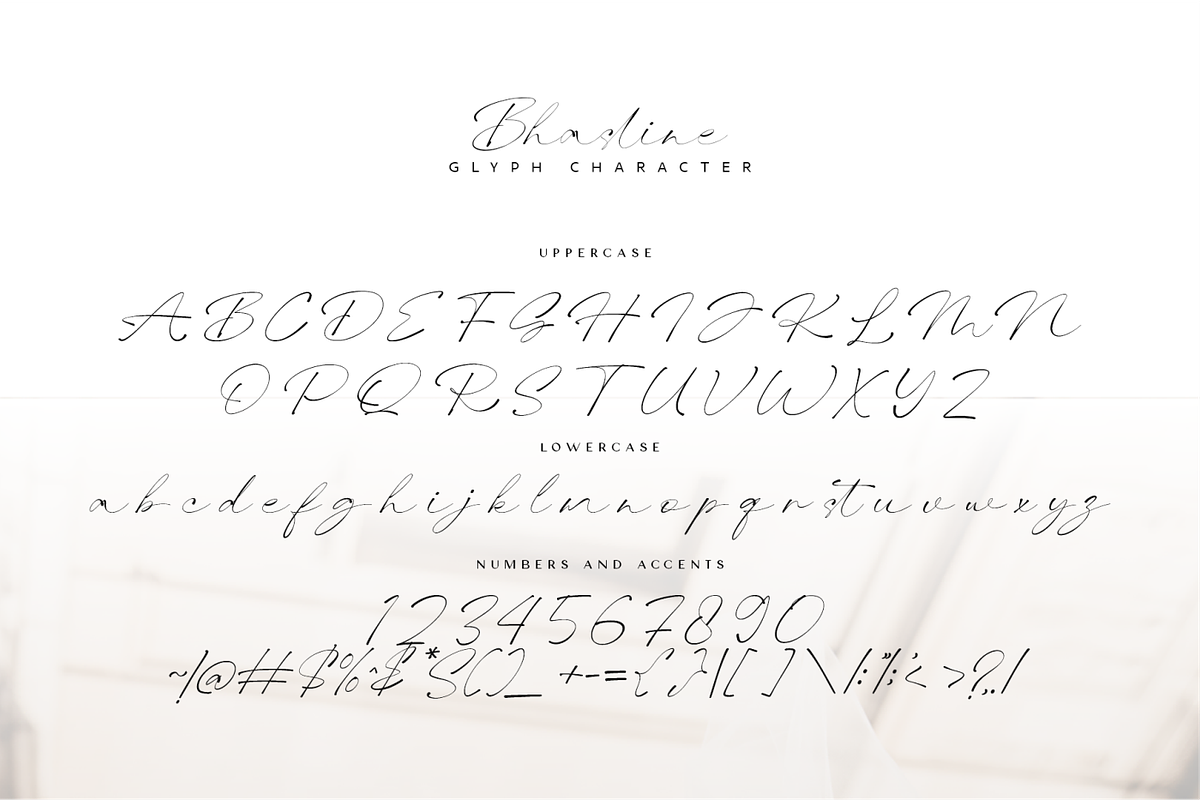 Bhasline
GLYPH CHARACTER
UPPERCASE
A B C D E F G H I J K L M N
O P Q R S T U V W X Y Z
LOWERCASE
a b c d e f g h i j k l m n o p q r s t u v w x y z
NUMBERS AND ACCENTS
1 2 3 4 5 6 7 8 9 0
~ ! @ # $ % ^ & * ( ) _ + - = { } | [ ] \ / : " ; ' < > ? , . /